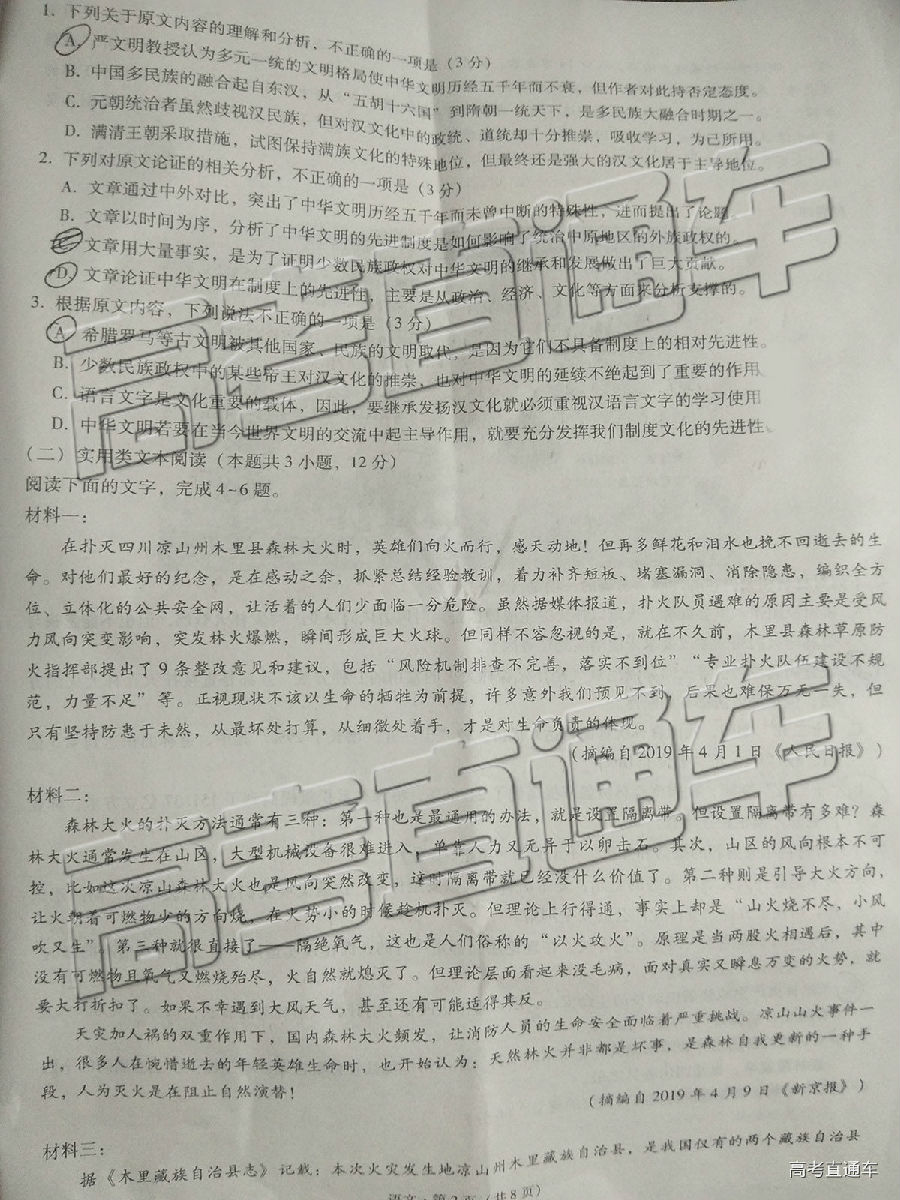 1. 下列关于原文内容的理解和分析，不正确的一项是（3分）
A. 严文明教授认为多元一统的文明格局使中华文明历经五千年而不衰，但作者对此持否定态度。
B. 中国多民族的融合起自东汉，从“五胡十六国”到隋朝一统天下，是多民族大融合时期之一。
C. 元朝统治者虽然歧视汉民族，但对汉文化中的政统、道统却十分推崇，吸收学习，为己所用。
D. 满清王朝采取措施，试图保持满族文化的特殊地位，但最终还是强大的汉文化居于主导地位。
2. 下列对原文论证的相关分析，不正确的一项是（3分）
A. 文章通过中外对比，突出了中华文明历经五千年而未曾中断的特殊性，进而提出了论题。
B. 文章以时间为序，分析了中华文明的先进制度是如何影响了统治中原地区的外族政权的。
文章用大量事实，是为了证明少数民族政权对中华文明的继承和发展做出了巨大贡献。
D. 文章论证中华文明在制度上的先进性，主要是从政治、经济、文化等方面来分析支撑的。
3. 根据原文内容，下列说法不正确的一项是（3分）
A. 希腊罗马等古文明被其他国家、民族的文明取代，是因为它们不具备制度上的相对先进性。
B. 少数民族政权中的某些帝王对汉文化的推崇，也对中华文明的延续不绝起到了重要的作用
C. 语言文字是文化重要的载体，因此，要继承发扬汉文化就必须重视汉语言文字的学习使用
D. 中华文明若要在当今世界文明的交流中起主导作用，就要充分发挥我们制度文化的先进性。
（二）实用类文本阅读（本题共3小题，12分）
阅读下面的文字，完成4~6题。
材料一：
在扑灭四川凉山州木里县森林大火时，英雄们向火而行，感天动地！但再多鲜花和泪水也挽不回逝去的生
命。对他们最好的纪念，是在感动之余，抓紧总结经验教训，着力补齐短板、堵塞漏洞、消除隐患，编织全方
位、立体化的公共安全网，让活着的人们少面临一分危险。虽然据媒体报道，扑火队员遇难的原因主要是受风
力风向突变影响，突发林火爆燃，瞬间形成巨大火球。但同样不容忽视的是，就在不久前，木里县森林草原防
火指挥部提出了9条整改意见和建议，包括“风险机制排查不完善，落实不到位”“专业扑火队伍建设不规
范，力量不足”等。正视现状不该以生命的牺牲为前提，许多意外我们预见不到，后果也难保万无一失，但
只有坚持防患于未然，从最坏处打算，从细微处着手，才是对生命负责的体现。
（摘编自2019年4月1日《人民日报》）
材料二：
森林大火的扑灭方法通常有三种：第一种也是最通用的办法，就是设置隔离带。但设置隔离带有多难？森
林大火通常发生在山区，大型机械设备很难进入，单靠人力又无异于以卵击石。其次，山区的风向根本不可
控，比如这次凉山森林大火也是风向突然改变，这时隔离带就已经没什么价值了。第二种则是引导大火方向，
让火朝着可燃物少的方向烧，在火势小的时候趁机扑灭。但理论上行得通，事实上却是“山火烧不尽，小风
吹又生”。第三种就很直接了——隔绝氧气，这也是人们俗称的“以火攻火”。原理是当两股火相遇后，其中
没有可燃物且氧气又燃烧殆尽，火自然就熄灭了。但理论层面看起来没毛病，面对真实又瞬息万变的火势，就
要大打折扣了。如果不幸遇到大风天气，甚至还有可能适得其反。
天灾加人祸的双重作用下，国内森林大火频发，让消防人员的生命安全面临着严重挑战。凉山山火事件一
出，很多人在惋惜逝去的年轻英雄生命时，也开始认为：天然林火并非都是坏事，是森林自我更新的一种手
段，人为灭火是在阻止自然演替！
（摘编自2019年4月9日《新京报》）
材料三：
据《木里藏族自治县志》记载：本次火灾发生地凉山州木里藏族自治县，是我国仅有的两个藏族自治县
语文 第2页（共8页）
高考直通车
高考直通车
高考直通车